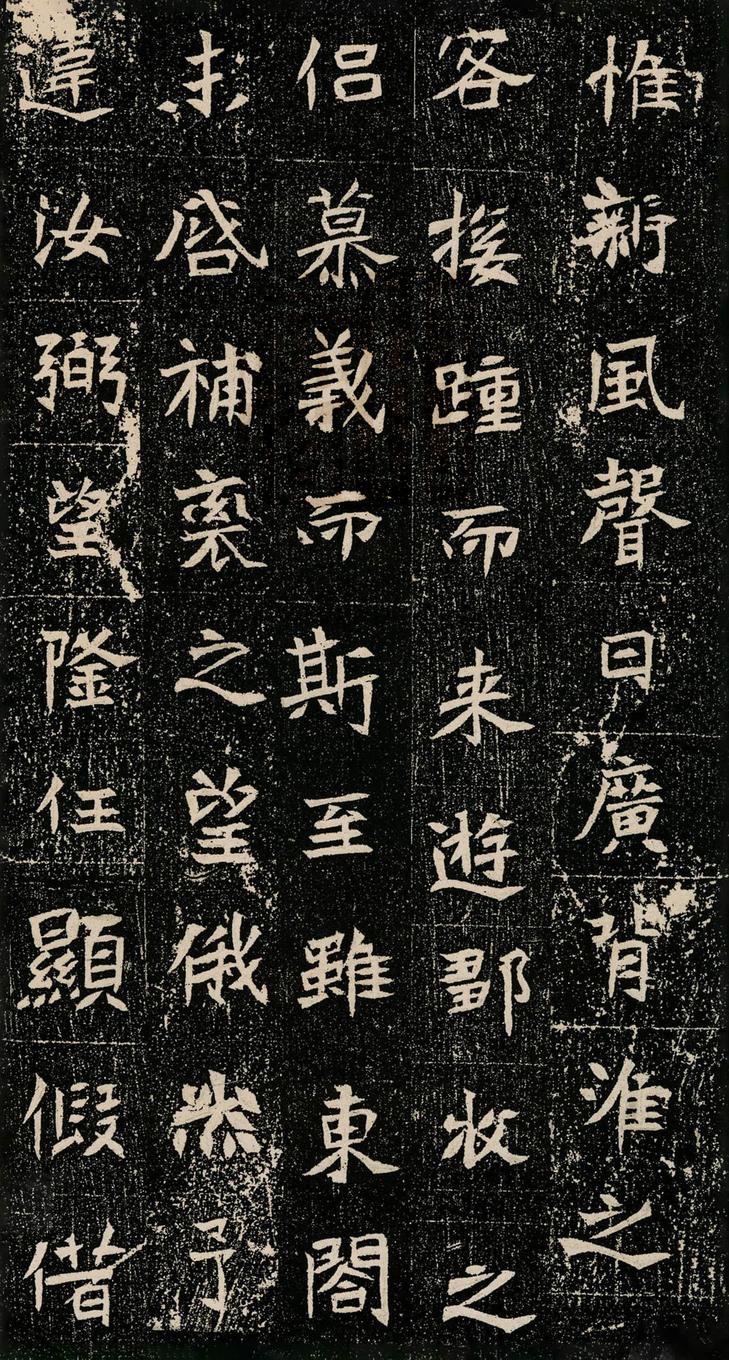 惟新風聲日廣背淮之
客接踵而来遊鄴牧之
侣慕義而斯至雖東閤
未啓補衮之望俄然予
違汝弼望隆任顯假借